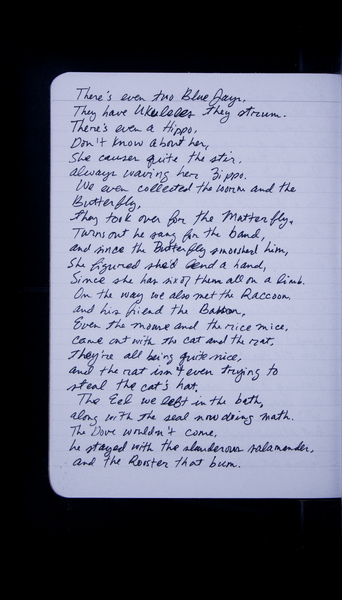 There's even two Blue Jays,
They have Ukuleles they strum.
There's even a Hippo,
Don't know about her,
She causes quite the stir,
always waving her Zippo.
We even collected the worm and the
Butterfly,
they took over for the Matterfly,
Turns out he sang for the band,
and since the Butterfly smooshed him,
She figured she'd lend a hand,
Since she has six of them all on a limb.
On the way we also met the Raccoon
and his friend the Baboon,
Even the mouse and the nice mice,
came out with the cat and the rat,
they're all being quite nice,
and the rat isn't even trying to
steal the cat's hat.
The Eel we left in the bath,
along with the seal now doing math.
The Dove wouldn't come,
he stayed with the slanderous salamander,
and the Rooster that bum.